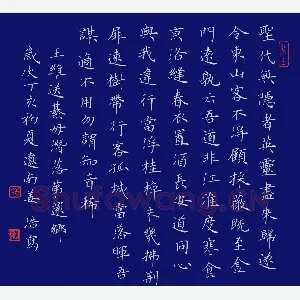 聖代無隱者英靈盡來歸遂
令東山客不得顧採薇既至金
門遠孰云吾道非江淮度寒食
京洛縫春衣置酒長安道同心
與我違行當浮桂棹未幾拂荊
扉遠樹帶行客孤城當落暉吾
謀適不用勿謂知音稀
王維送綦毋潛落第還鄉
歲次丁亥初夏遼南浩寫